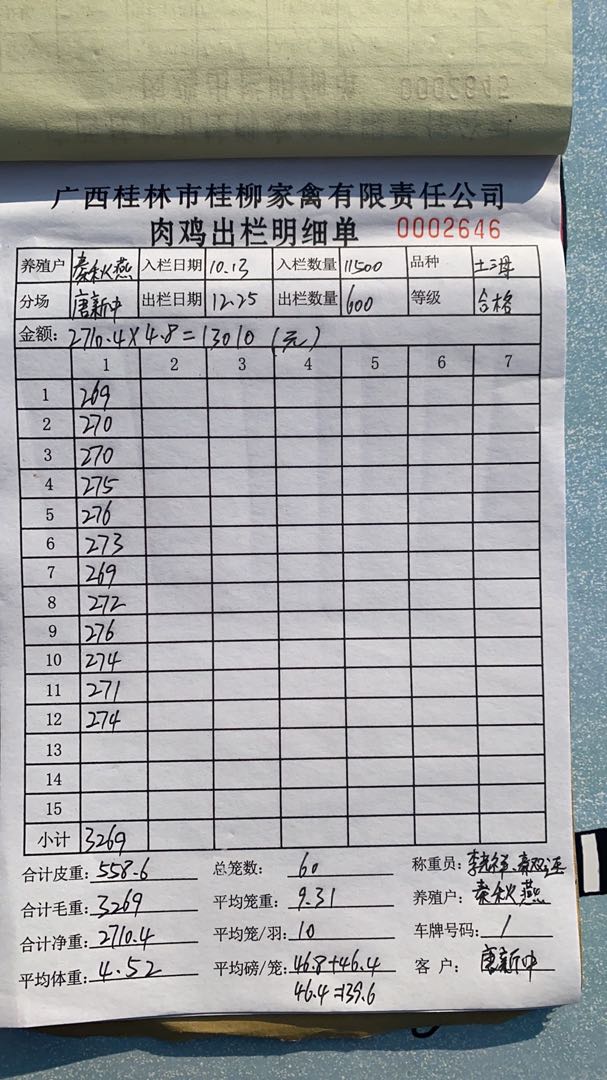 广西桂林市桂柳家禽有限责任公司
肉鸡出栏明细单 0002646
养殖户 秦秋燕 入栏日期 10.13 入栏数量 11500 品种 土三母
分场 唐新中 出栏日期 12.25 出栏数量 600 等级 合格
金额: 2710.4×4.8=13010(元)
1 2 3 4 5 6 7
1 269
2 270
3 270
4 275
5 276
6 273
7 269
8 272
9 276
10 274
11 271
12 274
13
14
15
小计 3269
合计皮重: 558.6 总笼数: 60 称重员:
合计毛重: 3269 平均笼重: 9.31 养殖户: 秦秋燕
合计净重: 2710.4 平均笼/羽: 10 车牌号码: /
平均体重: 4.52 平均磅/笼: 46.8+46.4 客户: 唐新中
46.4=139.6